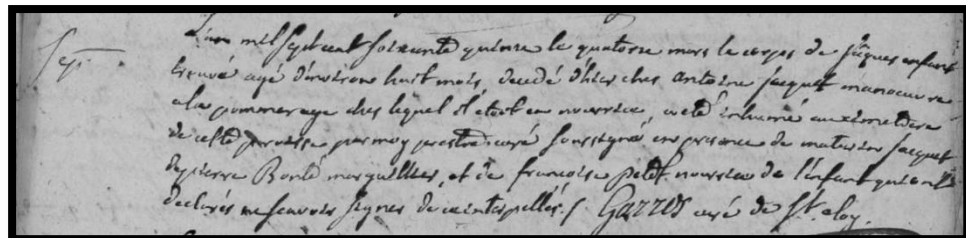 L'an mil sept cent soixante quinze le quatorze mars le corps de jaques enfant
Sep. trouvé agé d'environ huit mois, decedé d'hier ches antoine jacquet manoeuvre
a la pommeraye ches lequel il étoit en nourrice, a eté inhumé au cimetiere
de cette paroisse par moy prestre curé soussigné, en presence de maturin jacquet
de pierre Bonté marguilliers, et de francoise petit nourrice de l'enfant qui ont
declarés ne scavoir signer de ce interpellés. Garros curé de St. eloy.